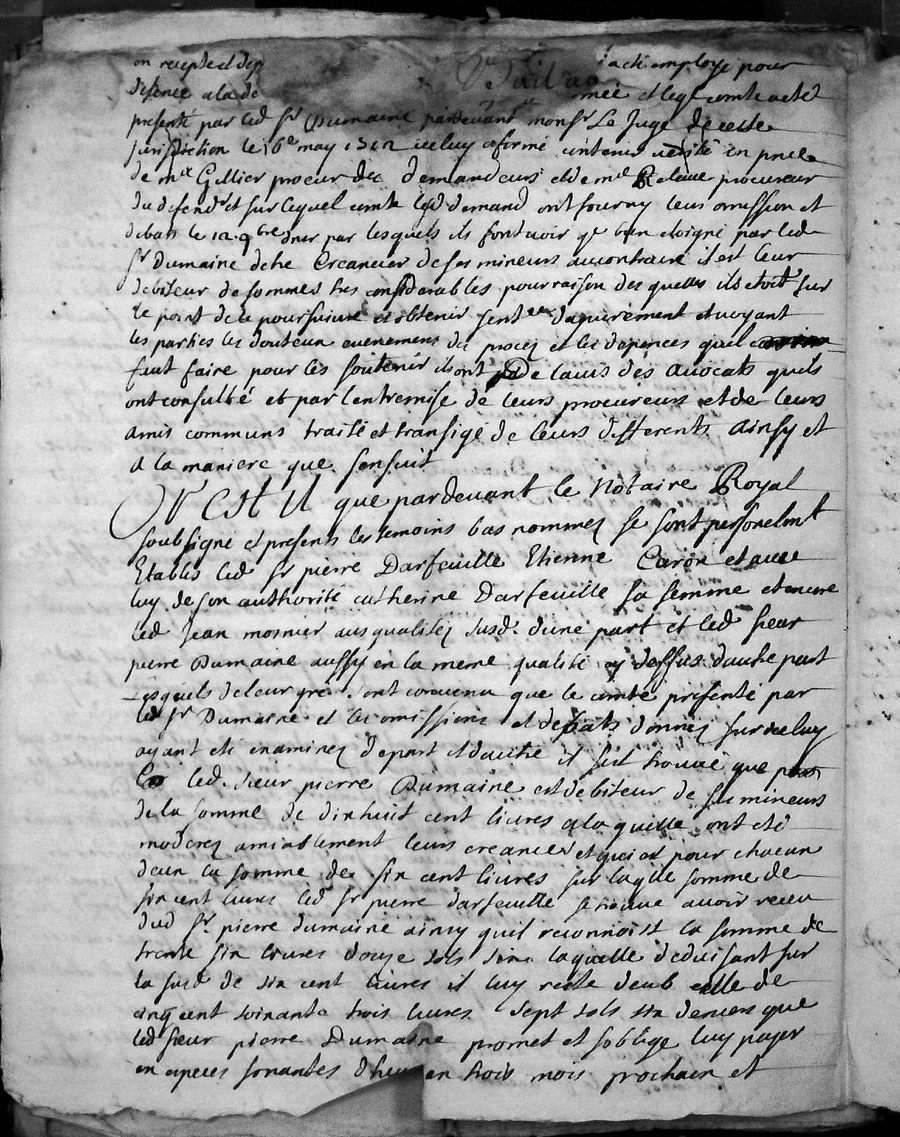 en recepte et dep acte employe pour
defence a la de mée et leq. comte acte
presenté par led. Sr Dumaine pardevant monsr Le Juge de cette
jurisdiction le 6e may iceluy afirmé contenir verité en pnce
de me Gillier procur des demandeurs et de me procureur
du defendr et sur lequel comte lesd demand ont fourny leurs omission et
debats le 12 9bre dnier par lesquels ils font voir que bien eloigné par led
Sr Dumaine detre Creancier de ses mineurs au contraire il est leur
debiteur de sommes tres considerables pour raison des quelles ils etoit sur
le point de le poursuivre et obtenir sentce dapurement et voyant
les parties les douteux evenemens des procez et les depences quil
faut faire pour les soutenir ils ont de lavis des avocats quils
ont consulté et par lentremise de leurs procureurs et de leurs
amis communs traité et transigé de leurs differents ainsy et
a la maniere que sensuit
Pr Est il que pardevant le Notaire Royal
soubsigné et presents les temoins bas nommez se sont personelmt
Etablis led Sr pierre Darfeuille Etienne Caron et avec
luy de son authorité catherine Darfeuille sa femme et encore
led Jean mosnier aus qualitez susd. dune part et led sieur
pierre Dumaine aussy en la meme qualité cy dessus dautre part
Lesquels de leur gre ont convenu que le comte presenté par
led Sr Dumaine et les omissions et debats donnez sur iceluy
ayant eté examinez depart et dautre il sest trouvé que
led. sieur pierre Dumaine est debiteur de ses mineurs
de la somme de dixhuit cent livres a la quelle ont eté
moderez amiablement leurs creances et qui est pour chacun
deux la somme de six cent livres sur laqlle somme de
six cent livres led Sr pierre darfeuille se trouve avoir receu
dud Sr. pierre dumaine ainsy quil reconnoist la somme de
trente six livres douze sols six laquelle deduisant sur
la susd de six cent livres il luy reste deub celle de
cinq cent soixante trois livres sept sols six deniers que
led sieur pierre Dumaine promet et soblige luy payer
en especes sonantes dhuy en trois mois prochain et